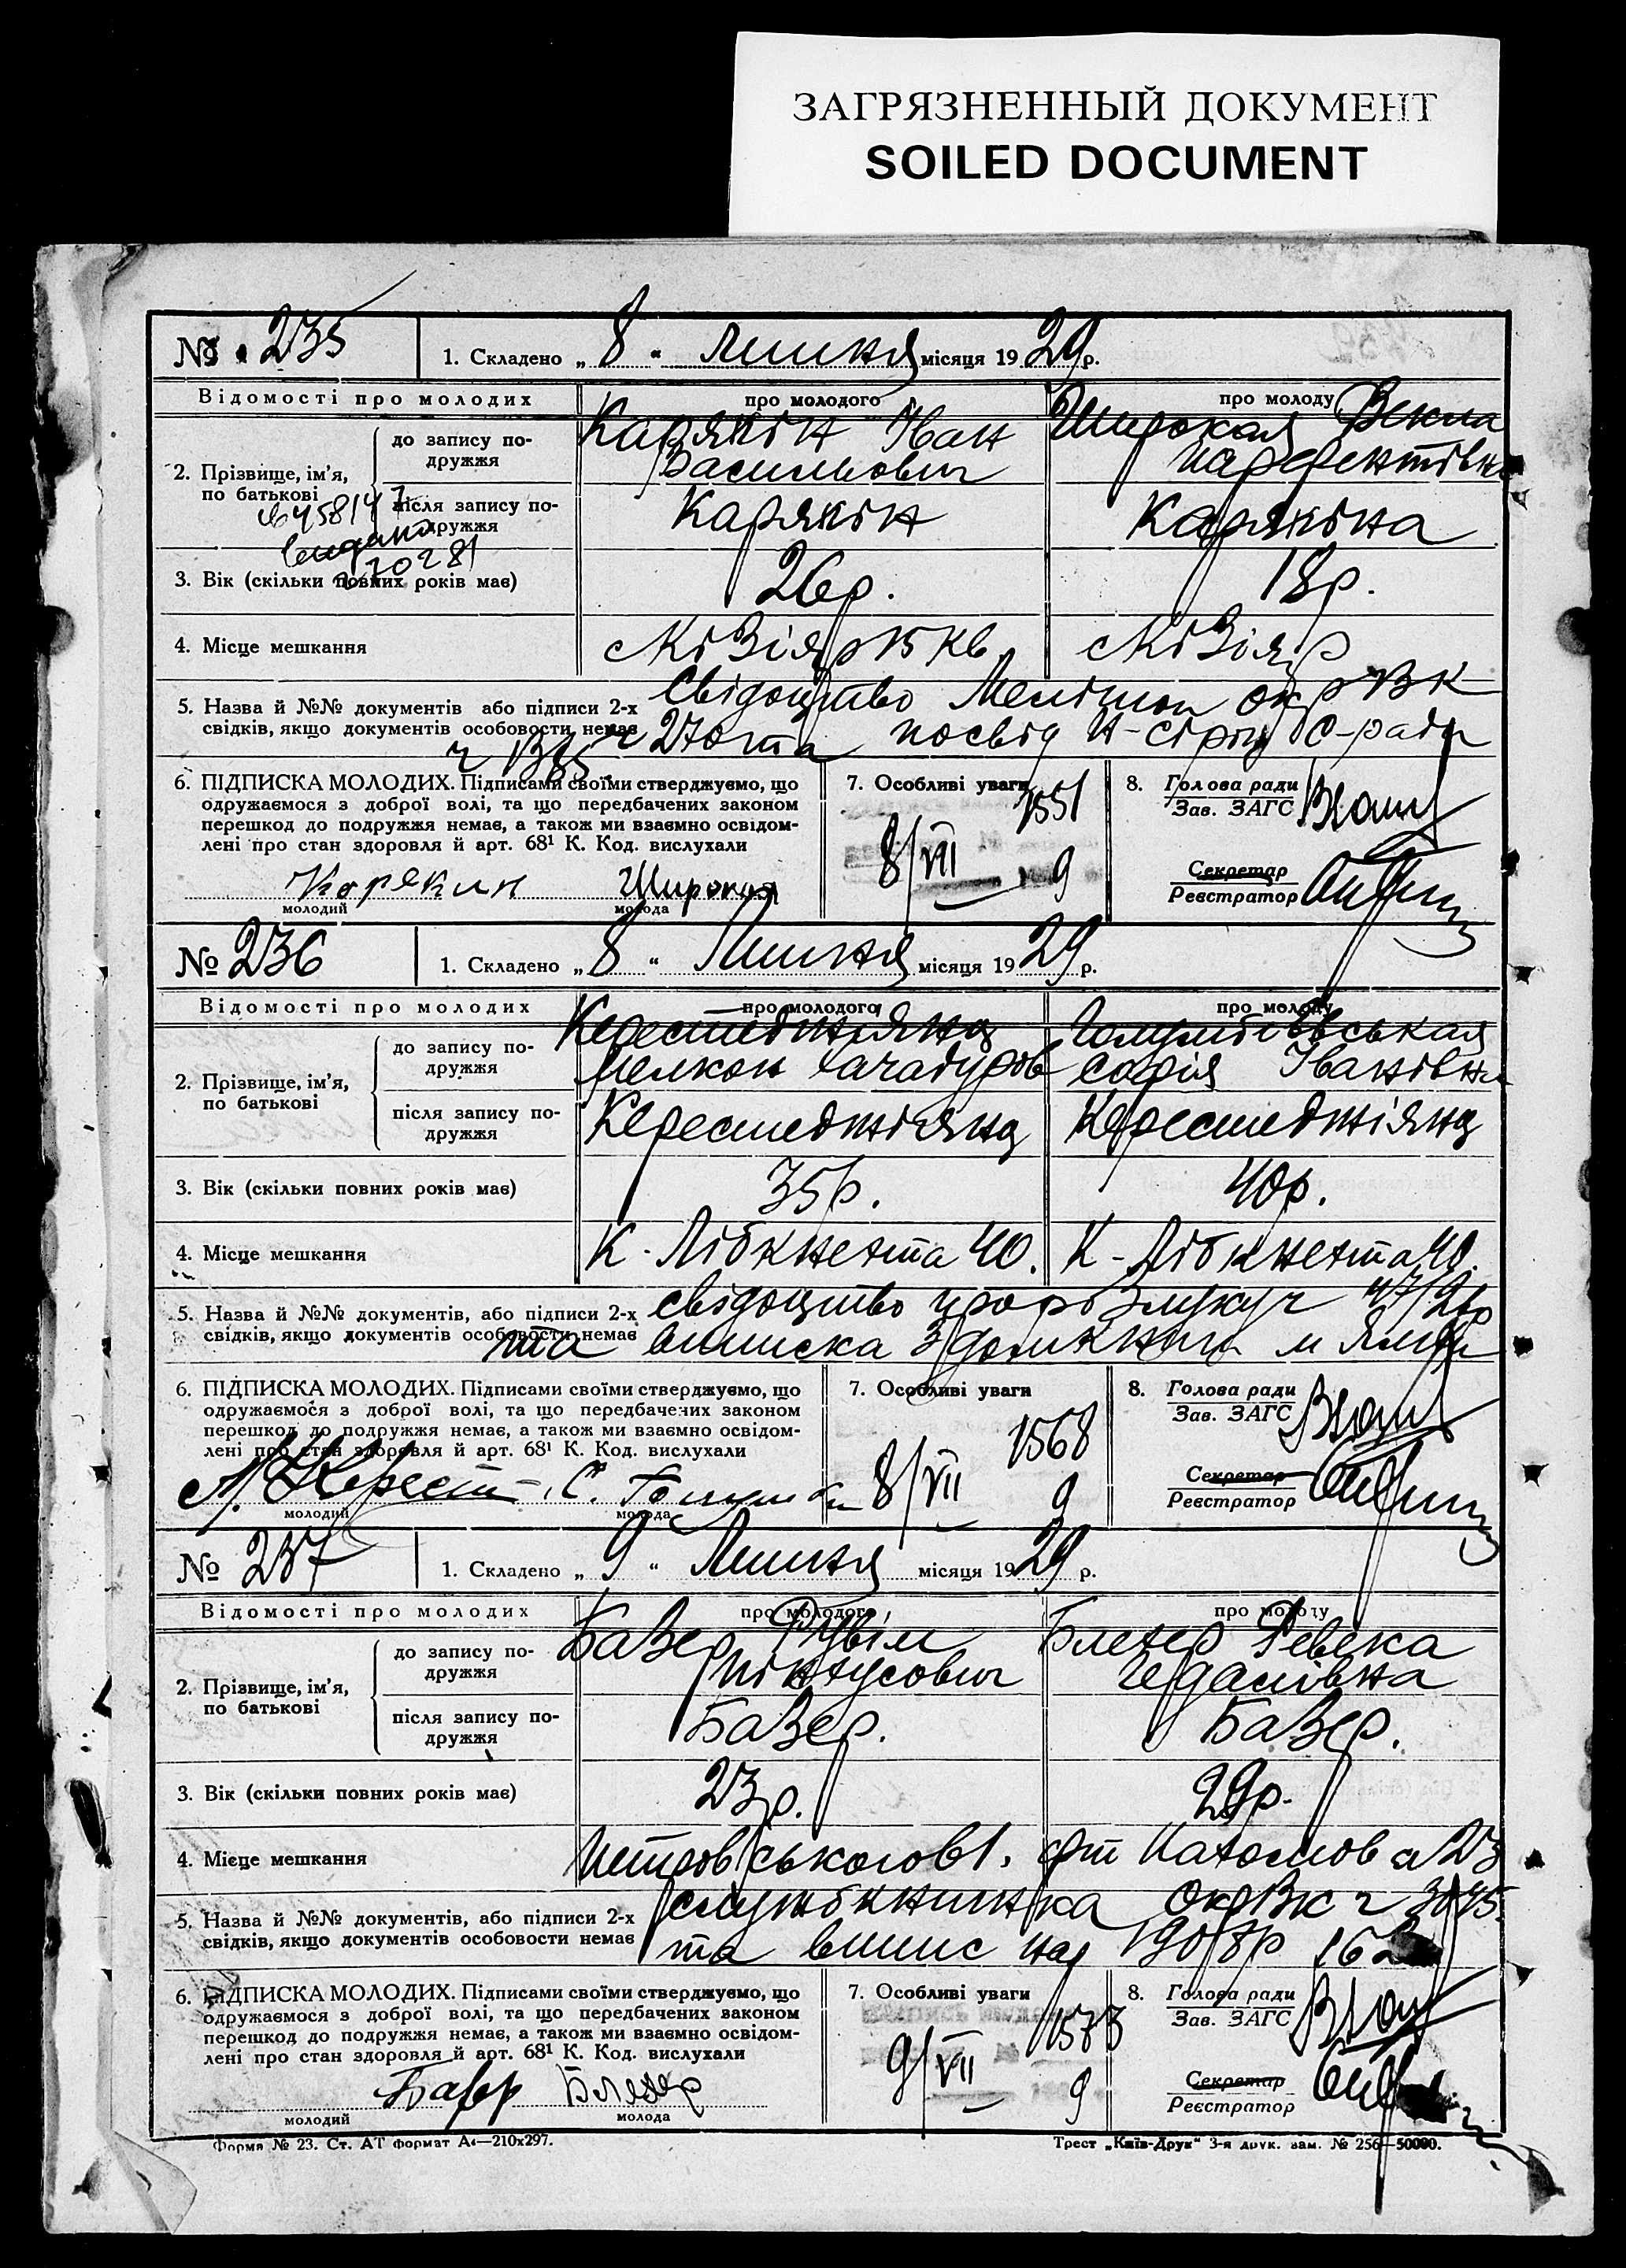 ЗАГРЯЗНЕННЫЙ ДОКУМЕНТ
SOILED DOCUMENT
№ 235
1. Складено „ 8 “ Липня місяця 1929 р.
Відомості про молодих
про молодого
про молоду
2. Прізвище, ім'я, по батькові
до запису по-
дружжя
Карякін Іван
Васильович
Широкая Векла
Парфентівна
після запису по-
дружжя
Карякін
Карякіна
3. Вік (скільки повних років має)
26р.
18р.
4. Місце мешкання
Кізіяр 15 кв
Кізіяр
5. Назва й №№ документів або підписи 2-х
свідків, якщо документів особовости немає
Свідоцтво Меліton ОкрВК
270 та посвід Н-сіроц С-ради
6. ПІДПИСКА МОЛОДИХ. Підписами своїми стверджуємо, що
одружаємося з доброї волі, та що передбачених законом
перешкод до подружжя немає, а також ми взаємно освідом-
лені про стан здоровля й арт. 68¹ К. Код. вислухали
Корякин Широкая
молодий молода
7. Особливі уваги
1551
8/VII 9
8. Голова ради
Зав. ЗАГС
Секретар
Реєстратор
№ 236
1. Складено „ 8 “ Липня місяця 1929 р.
Відомості про молодих
про молодого
про молоду
2. Прізвище, ім'я,
по батькові
до запису по-
дружжя
Керестеджіянц
Мелкон Хачатуров
Софія Іванівна
після запису по-
дружжя
Керестеджіянц
Керестеджіянц
3. Вік (скільки повних років має)
35р.
40р.
4. Місце мешкання
К-Лібкнехта 40.
К-Лібкнехта 40.
5. Назва й №№ документів, або підписи 2-х
свідків, якщо документів особовости немає
свідоцтво
та виписка з домкниги м Ялти
6. ПІДПИСКА МОЛОДИХ. Підписами своїми стверджуємо, що
одружаємося з доброї волі, та що передбачених законом
перешкод до подружжя немає, а також ми взаємно освідом-
лені про стан здоровля й арт. 68¹ К. Код. вислухали
молодий молода
7. Особливі уваги
1568
8/VII 9
8. Голова ради
Зав. ЗАГС
Секретар
Реєстратор
№ 237
1. Складено „ 9 “ Липня місяця 1929 р.
Відомості про молодих
про молодого
про молоду
2. Прізвище, ім'я,
по батькові
до запису по-
дружжя
Базер Рувім
Пінхусович
Блехер Ревека
Гедалівна
після запису по-
дружжя
Базер.
Базер.
3. Вік (скільки повних років має)
23р.
29р.
4. Місце мешкання
5. Назва й №№ документів, або підписи 2-х
свідків, якщо документів особовости немає
служб книжка ОкрВК ч 3045
та випис
6. ПІДПИСКА МОЛОДИХ. Підписами своїми стверджуємо, що
одружаємося з доброї волі, та що передбачених законом
перешкод до подружжя немає, а також ми взаємно освідом-
лені про стан здоровля й арт. 68¹ К. Код. вислухали
Базер Блехер
молодий молода
7. Особливі уваги
1573
9/VII 9
8. Голова ради
Зав. ЗАГС
Секретар
Реєстратор
Форма № 23. Ст. АТ формат А₄—210х297.
Трест „Київ-Друк“ 3-я друк. зам. № 256—50000.